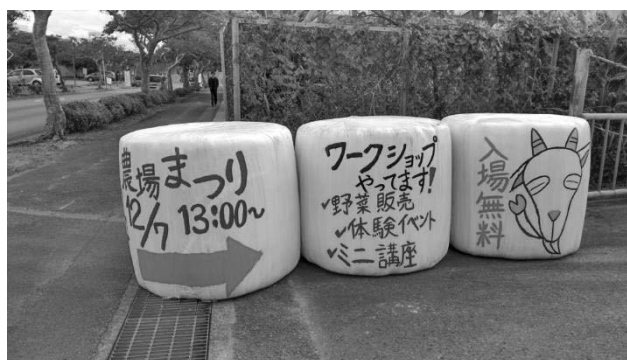 農場まつり
12/7 13:00~
ワークショップ
やってます!
✓野菜販売
✓体験イベント
✓ミニ講座
入場無料